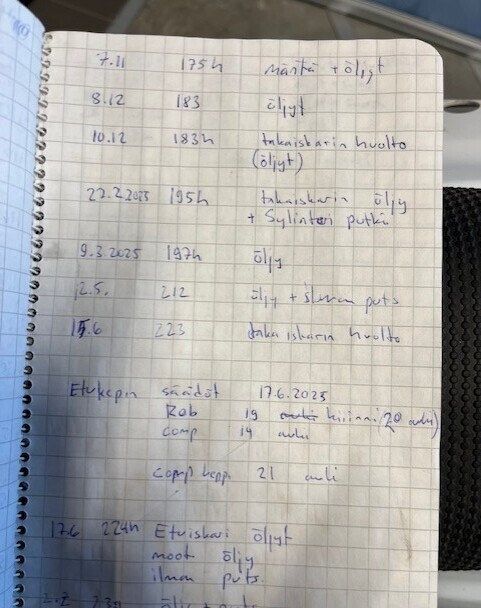 7.11 175h mäntä + öljyt
8.12 183 öljyt
10.12 183h takaiskarin huolto
(öljyt)
22.2.2025 195h takaiskarin öljy
+ Sylinteri putki
9.3.2025 197h öljy
2.5. 212 öljy + puts
15.6 223 takaiskarin huolto
Etukepin säädöt 17.6.2025
Reb 19 kiinni (20 auki)
comp 19 auki
comp keppi 21 auki
17.6 224h Etuiskari öljyt
moot öljy
ilman puts.
öljy + puts